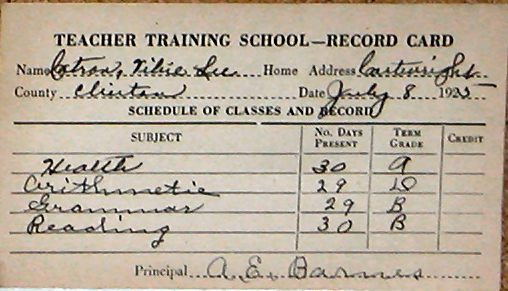 TEACHER TRAINING SCHOOL—RECORD CARD
Name Catron, Vihie Lee Home Address Cartwright
County Clinton Date July 8 1925
SCHEDULE OF CLASSES AND RECORD
SUBJECT No. DAYS PRESENT TERM GRADE CREDIT
Health 30 A
Arithmetic 29 D
Grammar 29 B
Reading 30 B
Principal A. E. Barnes